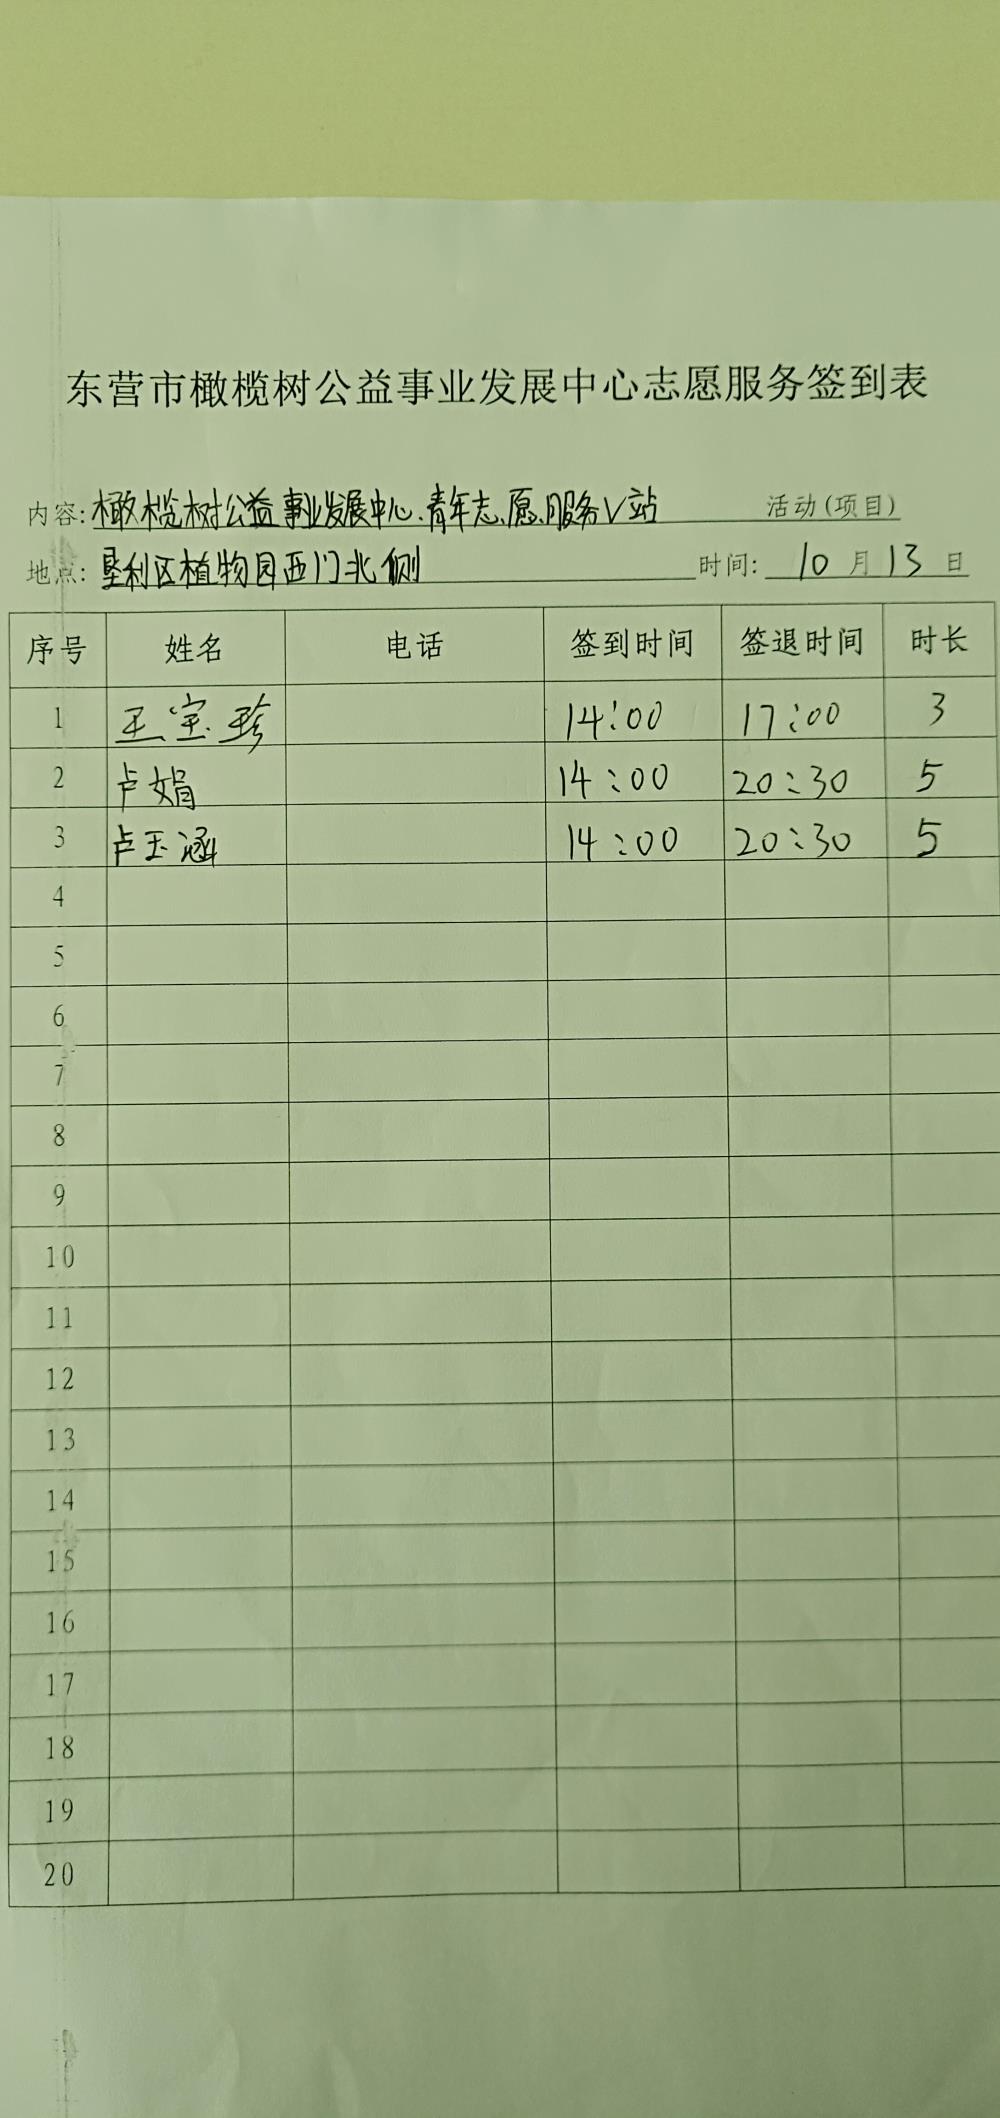 东营市橄榄树公益事业发展中心志愿服务签到表
内容:橄榄树公益事业发展中心青年志愿服务V站 活动(项目)
地点:垦利区植物园西门北侧 时间: 10 月 13 日
序号 姓名 电话 签到时间 签退时间 时长
1 王宝珍 14:00 17:00 3
2 卢娟 14:00 20:30 5
3 卢玉涵 14:00 20:30 5
4
5
6
7
8
9
10
11
12
13
14
15
16
17
18
19
20